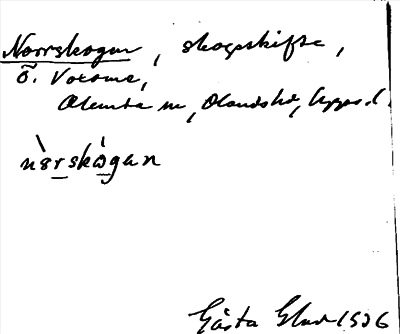 Norrskogen, skogsskifte,
Ö. Voxome,
Alunda sn, Olands hd, Upps. l.
nòrskógan
Gösta Elund 1936